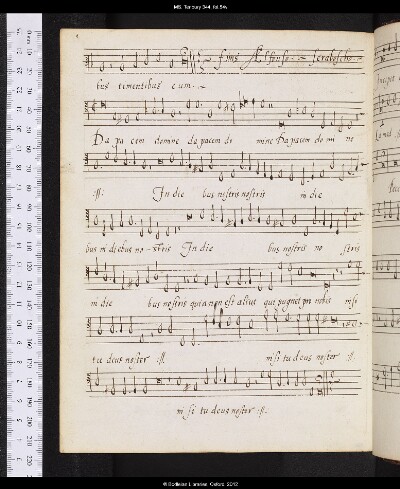 MS. Tenbury 344, fol.54v
finis Alfonso feraboscho
bus timentibus eum
Da pa cem domine da pacem do mine Da pacem do mi ne
:||: In die bus nostris nostris in die
bus in diebus no - stris In die bus nostris no stris
in die bus nostris quia non est alius qui pugnet pro nobis nisi
tu deus noster :||: nisi tu deus noster :||:
nisi tu deus noster :||:
© Bodleian Libraries, Oxford, 2012